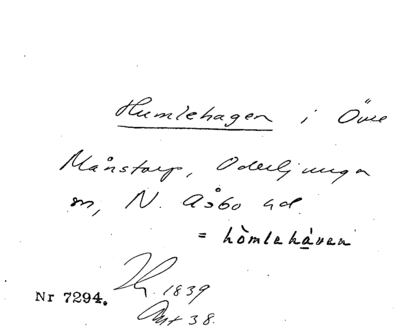 Humlehagen i Övre
Månstorp, Oderljunga
sn, N. Åsbo hd.
= hömlehàven
Nr 7294. 1839
38.